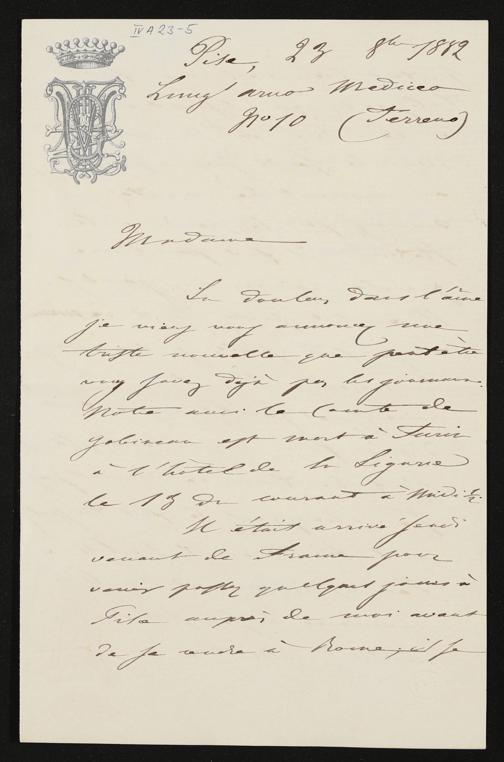 IV A 23-5
Pise, 23 8bre 1882
Lung' arno Mediceo
No 10 (Terreno)
Madame
La douleur dans l'âme
je viens vous annoncer une
triste nouvelle que peut être
vous savez déjà par les journaux.
Notre ami le Comte de
Gobineau est mort à Turin
à l'hôtel de la Ligurie
le 13 du courant à Midi ½.
Il était arrivé Jeudi
venant de France pour
venir passer quelques jours à
Pise auprès de moi avant
de se rendre à Rome; il se